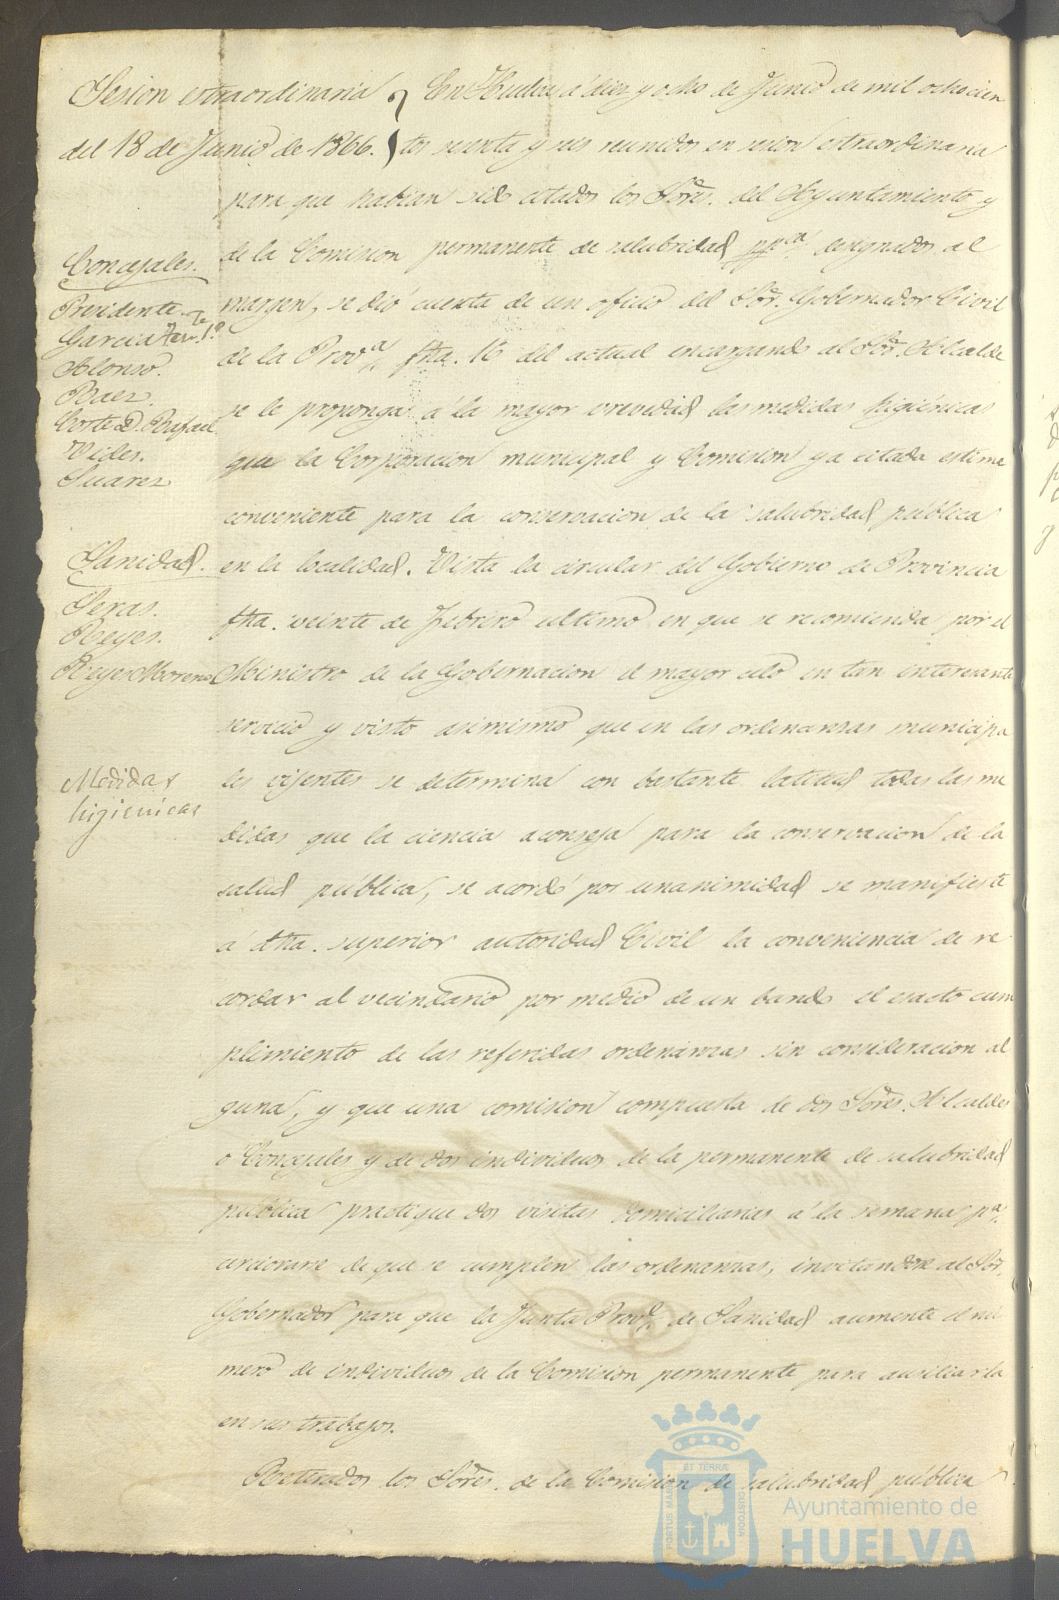 Sesion extraordinaria
del 18 de Junio de 1866.
En Huelva á diez y ocho de Junio de mil ochocien
tos sesenta y seis reunidos en sesion extraordinaria
para que habian sido citados los Sores. del Ayuntamiento y
de la Comision permanente de salubridad ppca. designados al
margen, se dió cuenta de un oficio del Sor. Gobernador Civil
de la Prova. fha. 16 del actual encargando al Sor. Alcalde
se le proponga á la mayor brevedad las medidas higiénicas
que la Corporacion municipal y Comision ya citada estime
conveniente para la conservacion de la salubridad pública
en la localidad. Vista la circular del Gobierno de Provincia
fha. veinte de Febrero ultimo en que se recomienda por el
Ministro de la Gobernacion el mayor celo en tan interesante
servicio y visto asimismo que en las ordenanzas municipa
les vijentes se determina con bastante latitud todas las me
didas que la ciencia aconseja para la conservacion de la
salud publica, se acordó por unanimidad se manifieste
á dha. superior autoridad Civil la conveniencia de re
cordar al vecindario por medio de un bando el exacto cum
plimiento de las referidas ordenanzas sin consideracion al
guna, y que una comision compuesta de dos Sores. Alcaldes
o Concejales y de dos individuos de la permanente de salubridad
publica practique dos visitas domiciliarias á la semana pa.
cerciorarse de que se cumplen las ordenanzas, invitandose al Sor.
Gobernador para que la Junta Provl. de Sanidad aumente el nu
mero de individuos de la Comision permanente para auxiliarla
en sus trabajos.
Retirados los Sores. de la Comision de salubridad pública
Concejales.
Presidente
Garcia Ten.te 1.º
Alonso.
Baez.
Corte D. Rafael
Vides.
Suarez
Sanidad.
Seras.
Reyes.
Reyes Moreno
Medidas
higienicas
PORTUS MARIS
ET TERRÆ
CUSTODIA
Ayuntamiento de
HUELVA